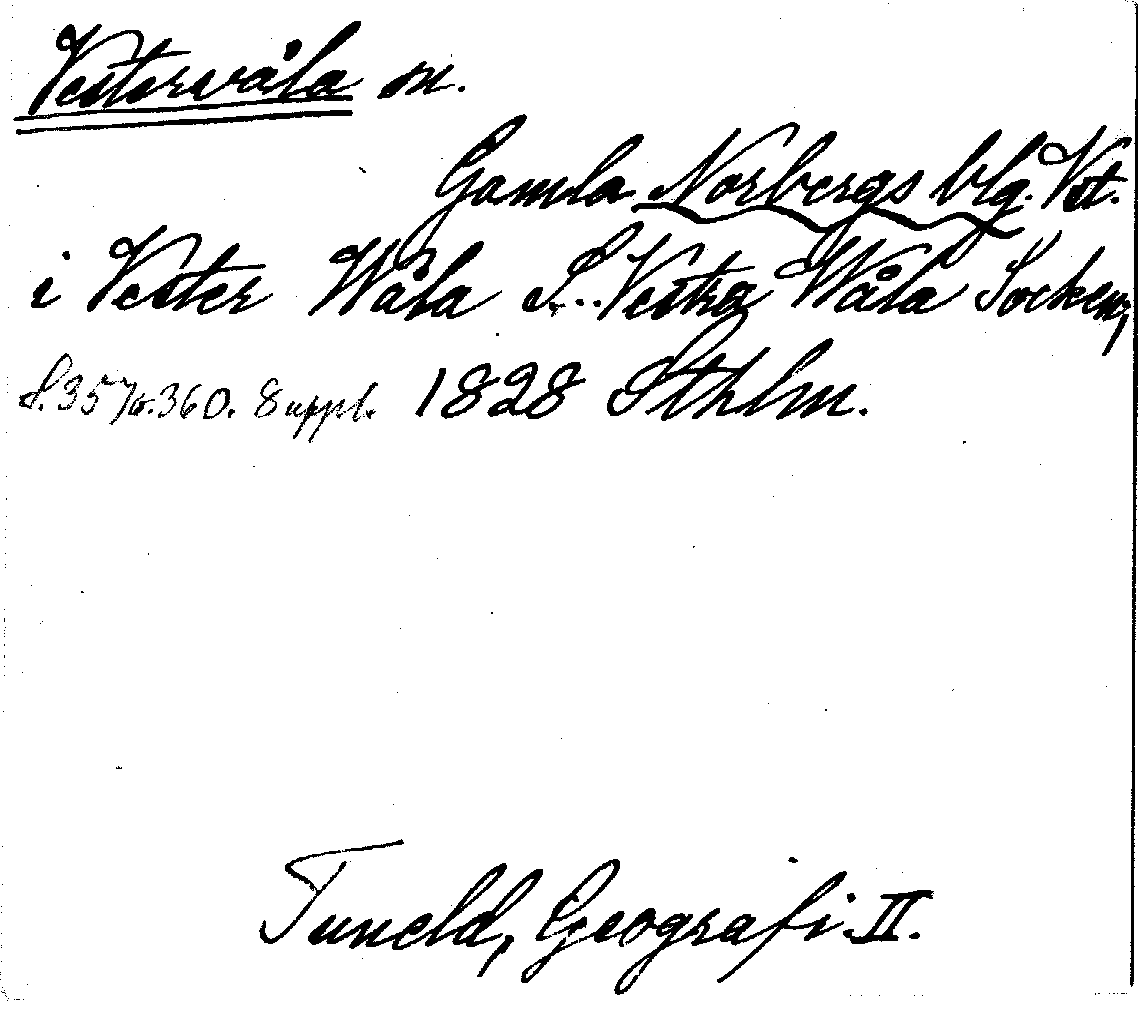 Vestervåla sn.
Gamla Norbergs blg. Vstm.
i Vester Wåla S... Vestra Wåla Socken,
S. 357 o. 360. Suppl. 1828 Sthlm.
Tuneld, Geografi. II.